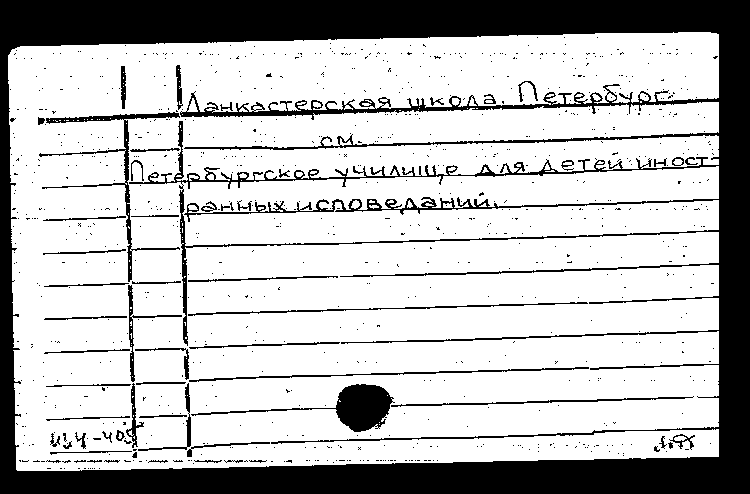 Ланкастерская школа. Петербург.
см.
Петербургское училище для детей иност-
ранных исповеданий.